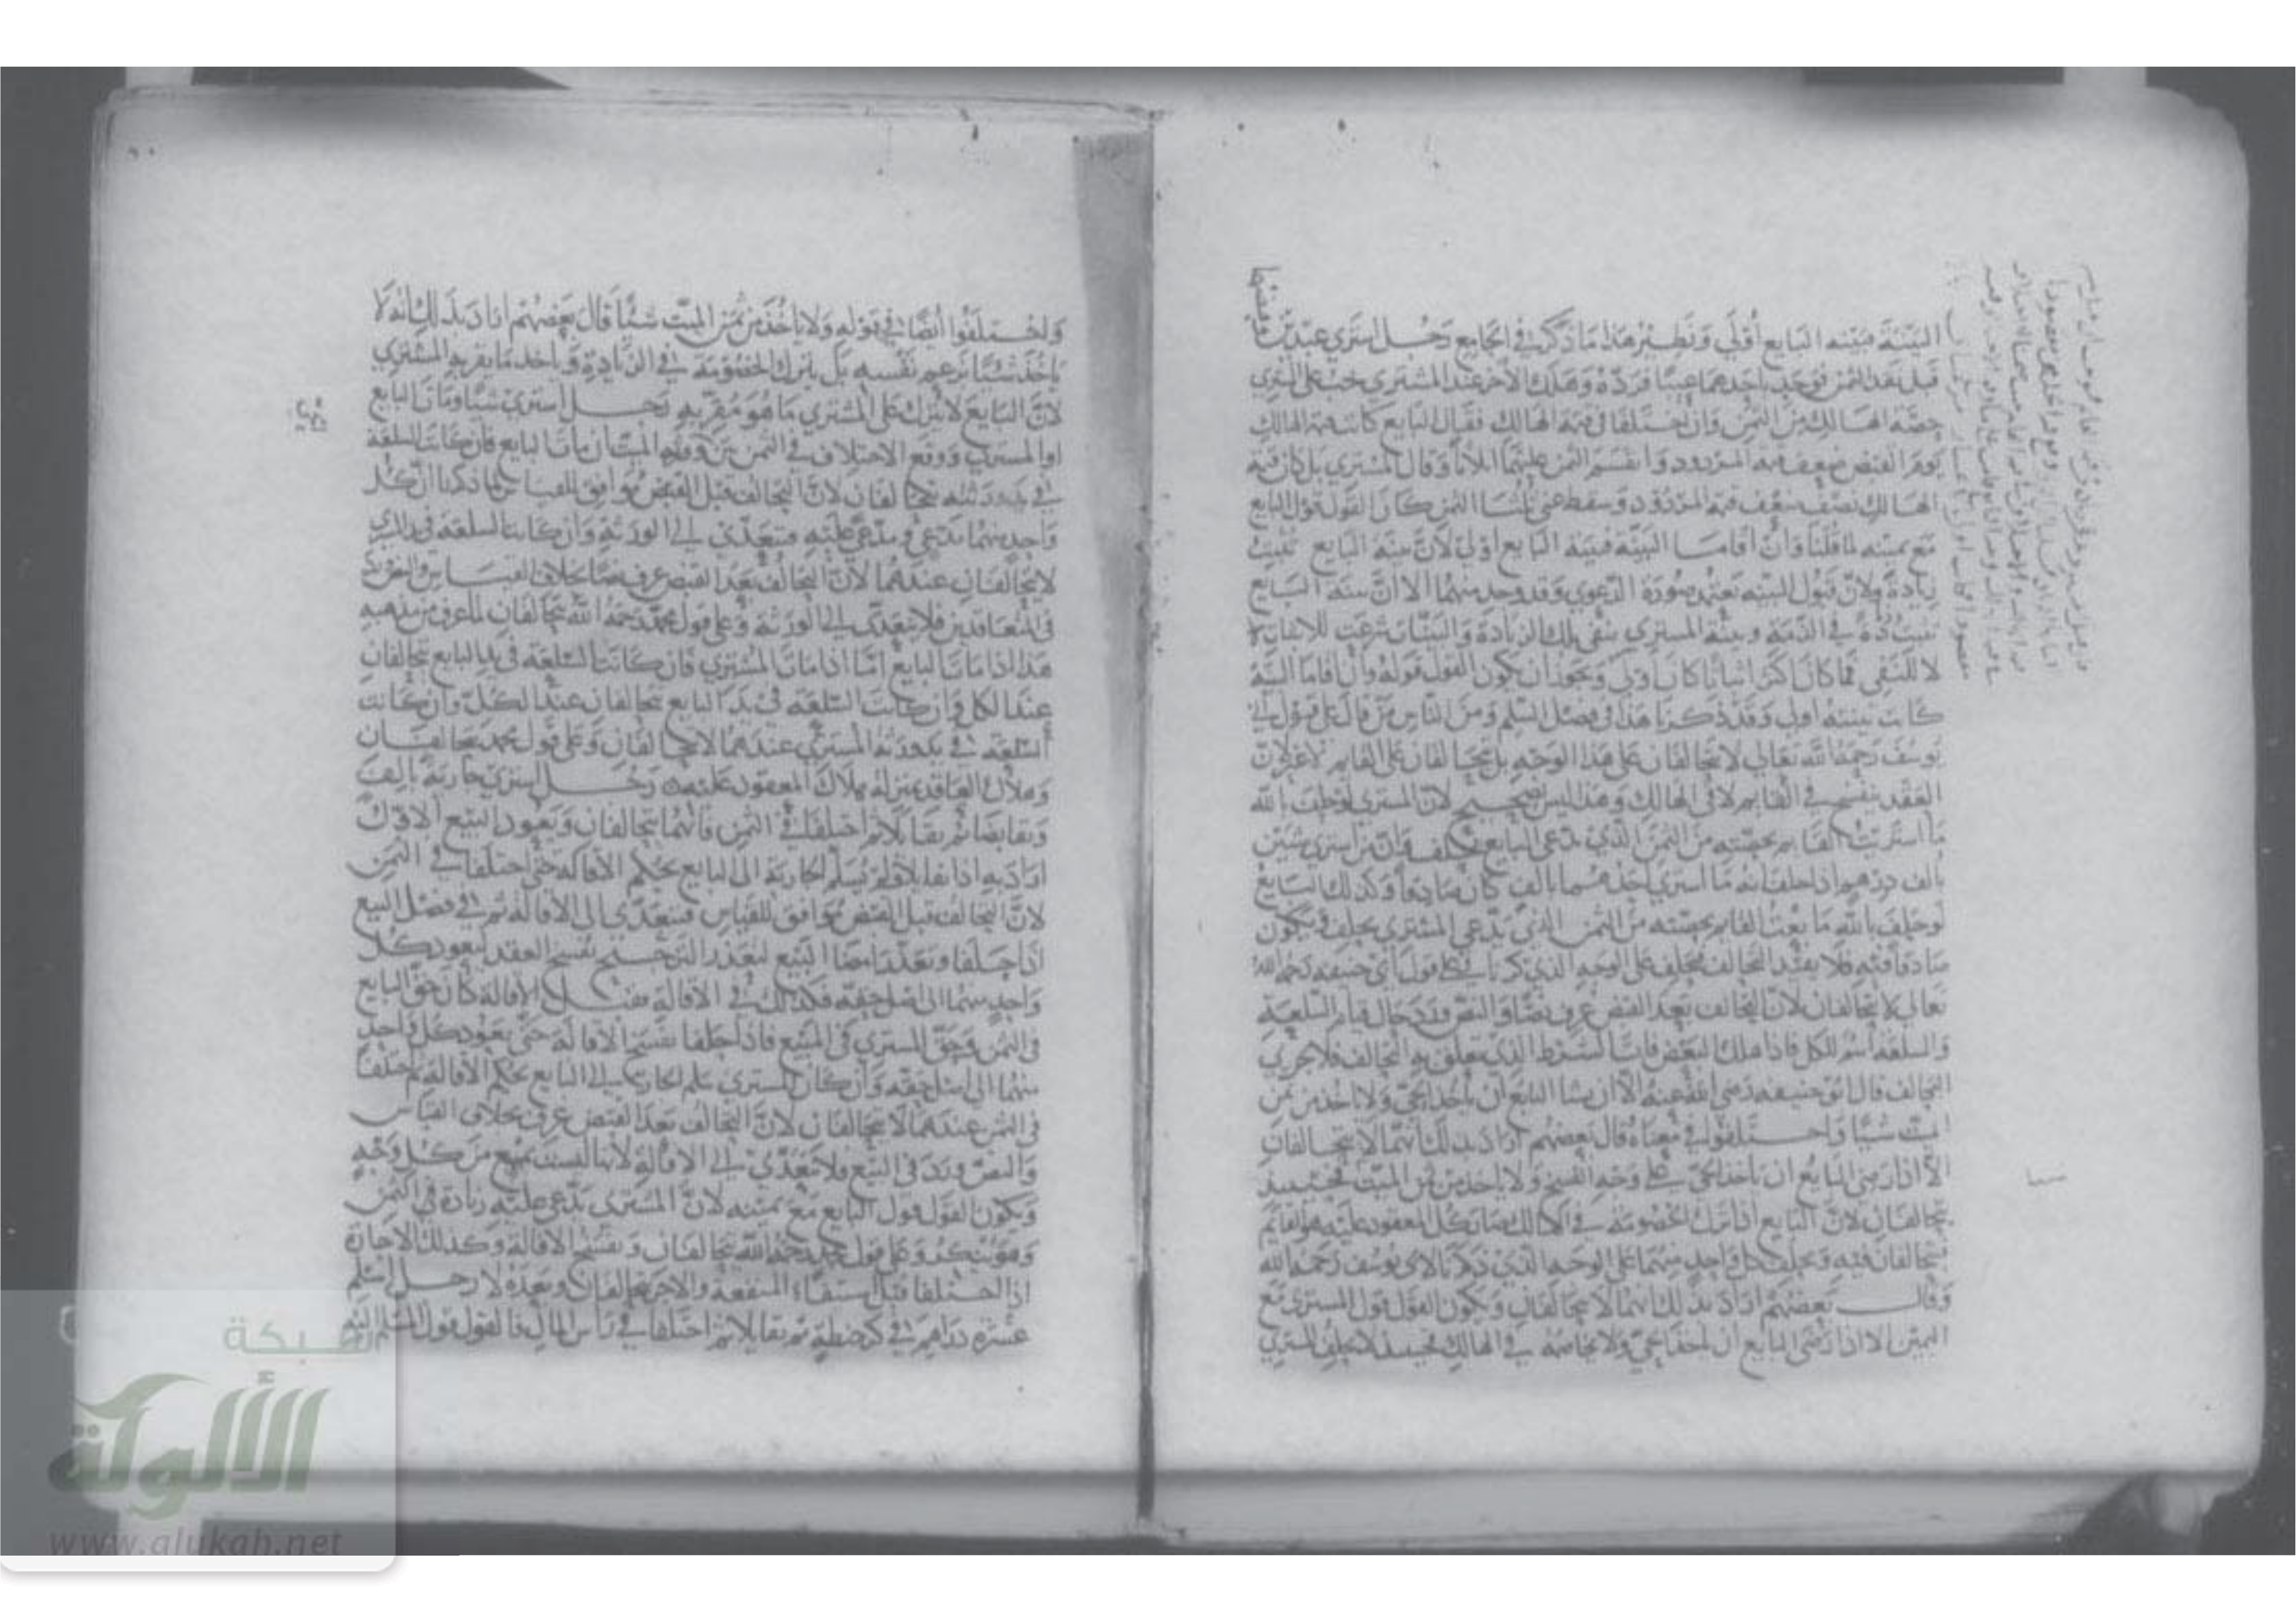 البينة فبينة البايع أولى ونظير هذا ما ذكر في الجامع رجل اشترى عبدين وقبضهما
قبل نقد الثمن فوجد باحدهما عيبا فرده وهلك الاخر عند المشتري يجب على المشتري
حصة الهالك من الثمن وان اختلفا في قيمة الهالك فقال البايع كانت قيمة الهالك
يوم القبض ضعف قيمة المردود وانقسم الثمن عليهما اثلاثا وقال المشتري بل كان قيمة
الهالك نصف قيمة المردود وسقط عني ثلثا الثمن كان القول قول البايع
مع يمينه لما قلنا وان أقاما البينة فبينة البايع اولى لان بينة البايع تثبت
زيادة ولان قبول البينة يعتمد صورة الدعوى وقد وجد منهما الا ان بينة البايع
تثبت في الذمة وبينة المشتري تنفي تلك الزيادة والبينات شرعت للاثبات
لا للنفي فما كان اكثر اثباتا كان اولى ويجوز ان يكون القول قوله وان اقاما البينة
كانت بينته اولى وقد ذكرنا هذا في فصل السلم ومن الناس من قال على قول أبي
يوسف رحمه الله تعالى لا يتحالفان على هذا الوجه بل يتحالفان على القايم لا غير لان
العقد ينفسخ في القايم لا في الهالك وهذا ليس بصحيح لان المشتري لو حلف بالله
ما اشتريت القايم بحصته من الثمن الذي يدعي البايع يحلف فان من اشترى شيئين
بألف درهم اذا حلف انه ما اشترى احدهما بالف كان صادقا وكذلك البايع
لو حلف بالله ما بعت القايم بحصته من الثمن الذي يدعي المشتري يحلف فيكون
صادقا فيه فلا يفيد التحالف فيحلف على الوجه الذي ذكرنا في على قول أبي حنيفة رحمه الله
تعالى لا يتحالفان لان التحالف بعد القبض عرف نصا والنص ورد حال قيام السلعة
والسلعة اسم للكل فاذا هلك البعض فات الشرط الذي تعلق به التحالف فلا يجري
التحالف قال أبو حنيفة رضي الله عنه الا ان يشا البايع أن يأخذ الحي ولا ياخذ من ثمن
الميت شيئا واختلفوا في معناه قال بعضهم اراد بذلك انهما لا يتحالفان
الا اذا رضي البايع ان ياخذ الحي على وجه الفسخ ولا ياخذ من ثمن الميت فحينئذ
يتحالفان لان البايع اذا ترك الخصومة في الهالك صار كل المعقود عليه هو القايم
فيتحالفان فيه ويحلف كل واحد منهما على الوجه الذي ذكرنا لابي يوسف رحمه الله
وقال بعضهم اراد بذلك انهما لا يتحالفان ويكون القول قول المشتري مع
اليمين الا اذا رضي البايع ان ياخذ الحي ولا يخاصمه في الهالك فحينئذ لا يحلف المشتري
واختلفوا أيضا في قوله ولا ياخذ من ثمن الميت شيئا قال بعضهم اراد بذلك انه لا
ياخذ شيئا بزعم نفسه بل يترك الخصومة في الزيادة وياخذ ما يقر به المشتري
لان البايع لا يترك على المشتري ما هو مقر به رجل اشترى شيئا ومات البايع
او المشتري ووقع الاختلاف في الثمن بين ورثة الميت ان مات البايع فان كانت السلعة
في يد ورثته يتحالفان لان التحالف قبل القبض موافق للقياس لما ذكرنا ان كل
واحد منهما مدعي ومدعى عليه فيتعدى الى الورثة وان كانت السلعة في يد المشتري
لا يتحالفان عندهما لان التحالف بعد القبض عرف نصا بخلاف القياس والنص ورد
في المتعاقدين فلا يتعدى الى الورثة وعلى قول محمد رحمه الله يتحالفان لما عرف من مذهبه
هذا اذا مات البايع اما اذا مات المشتري فان كانت السلعة في يد البايع يتحالفان
عند الكل وان كانت السلعة في يد البايع يتحالفان عند الكل وان كانت
السلعة في يد ورثة المشتري عندهما لا يتحالفان وعلى قول محمد يتحالفان
وهلاك العاقد بمنزلة هلاك المعقود عليه رجل اشترى جارية بألف
وتقابضا ثم تقايلا ثم اختلفا في الثمن فانهما يتحالفان ويعود البيع الاول
اراد به اذا تقايلا ولم يسلم الجارية الى البايع بحكم الاقالة حتى اختلفا في الثمن
لان التحالف قبل القبض موافق للقياس فيتعدى الى الاقالة ثم في فصل البيع
اذا حلفا وتعذر امضا البيع لتعذر الترجيح يفسخ العقد ليعود كل
واحد منهما الى اصل حقه فكذلك في الاقالة وقبل الاقالة كان حق البايع
في الثمن وحق المشتري في المبيع فاذا حلفا تفسخ الاقالة حتى يعود كل واحد
منهما الى اصل حقه وان كان المشتري سلم الجارية الى البايع بحكم الاقالة ثم اختلفا
في الثمن عندهما لا يتحالفان لان التحالف بعد القبض عرف بخلاف القياس
والنص ورد في البيع فلا يتعدى الى الاقالة لانها ليست ببيع من كل وجه
ويكون القول قول البايع مع يمينه لان المشتري يدعي عليه زيادة في الثمن
وهو ينكر وعلى قول محمد رحمه الله يتحالفان وتفسخ الاقالة وكذلك الاجارة
اذا اختلفا قبل استيفاء المنفعة والاجر يتحالفان وبعده لا رجل اسلم
عشرة دراهم في كر حنطة ثم تقايلا ثم اختلفا في رأس المال فالقول قول المسلم اليه
شبكة
الألوكة
www.alukah.net